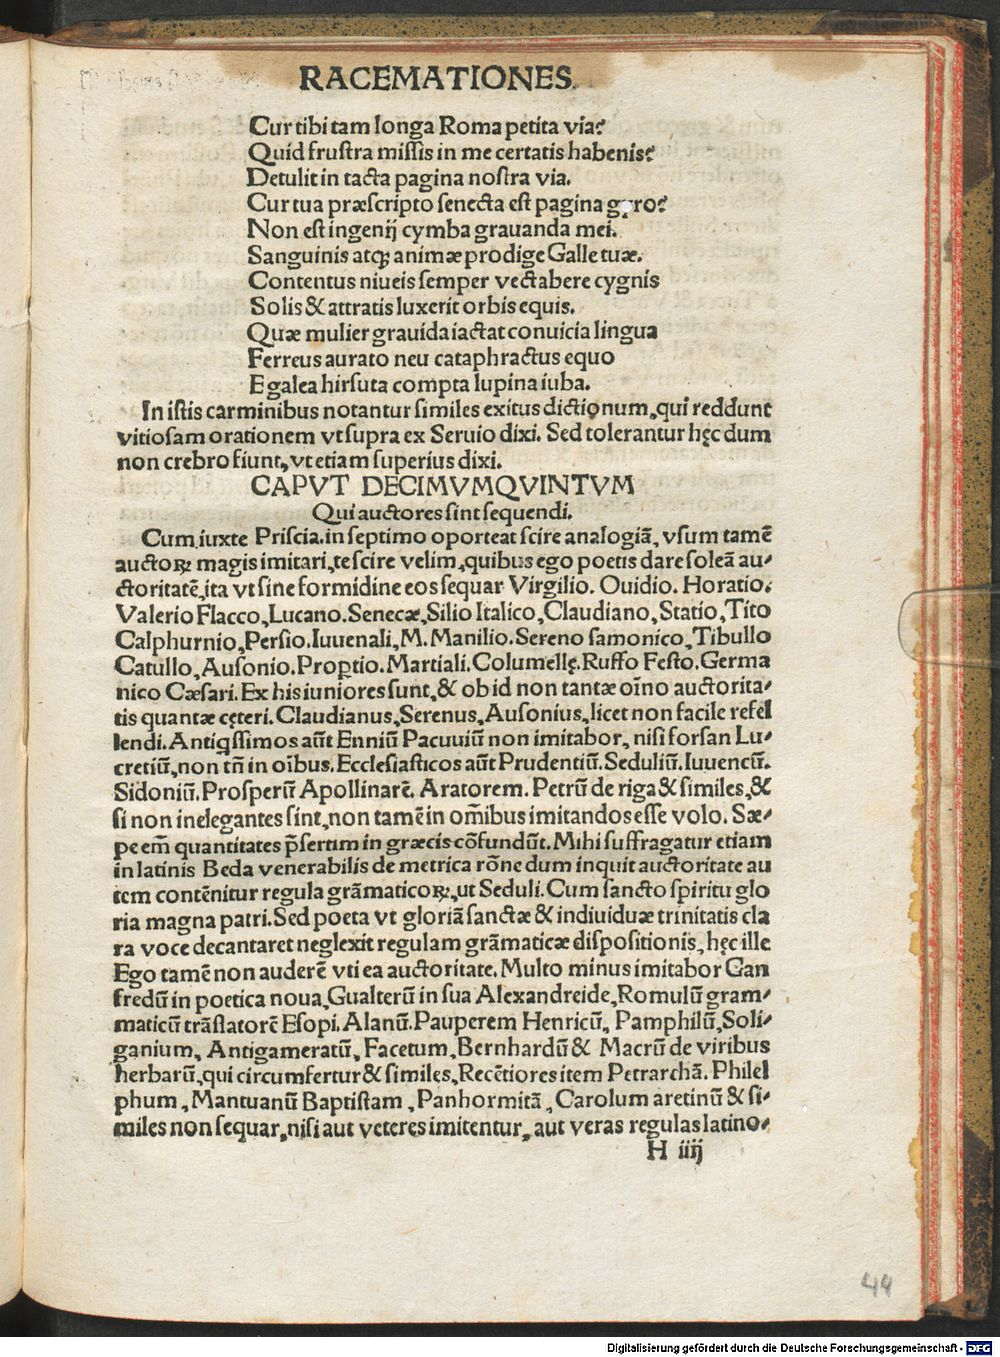 RACEMATIONES.
Cur tibi tam longa Roma petita via?
Quid frustra missis in me certatis habenis?
Detulit in tacta pagina nostra via.
Cur tua præscripto senecta est pagina gyro?
Non est ingenij cymba grauanda mei.
Sanguinis atqꝫ animæ prodige Galle tuæ.
Contentus niueis semper vectabere cygnis
Solis & attratis luxerit orbis equis.
Quæ mulier grauida iactat conuicia lingua
Ferreus aurato neu cataphractus equo
E galea hirsuta compta lupina iuba.
In istis carminibus notantur similes exitus dictionum, qui reddunt
vitiosam orationem vt supra ex Seruio dixi. Sed tolerantur hęc dum
non crebro fiunt, vt etiam superius dixi.
CAPVT DECIMVMQVINTVM
Qui auctores sint sequendi.
Cum iuxte Priscia. in septimo oporteat scire analogiā, vsum tamē
auctoꝝ magis imitari, te scire velim, quibus ego poetis dare soleā au-
ctoritatē, ita vt sine formidine eos sequar Virgilio. Ouidio. Horatio.
Valerio Flacco, Lucano. Senecæ, Silio Italico, Claudiano, Statio, Tito
Calphurnio, Persio. Iuuenali, M. Manilio. Sereno samonico, Tibullo
Catullo, Ausonio. Prop̱tio. Martiali. Columellę. Ruffo Festo. Germa
nico Cæsari. Ex his iuniores sunt, & ob id non tantæ oīno auctorita-
tis quantæ cęteri. Claudianus, Serenus, Ausonius, licet non facile refel
lendi. Antiqssimos aūt Enniū Pacuuiū non imitabor, nisi forsan Lu-
cretiū, non tn̄ in oībus. Ecclesiasticos aūt Prudentiū. Seduliū. Iuuencū.
Sidoniū. Prosperū Apollinarē. Aratorem. Petrū de riga & similes, &
si non inelegantes sint, non tamē in om̄ibus imitandos esse volo. Sæ-
pe em̄ quantitates p̄sertim in græcis cōfundūt. Mihi suffragatur etiam
in latinis Beda venerabilis de metrica rōne dum inquit auctoritate au
tem contēnitur regula grāmaticoꝝ, ut Seduli. Cum sancto spiritu glo
ria magna patri. Sed poeta vt gloriā sanctæ & indiuiduæ trinitatis cla
ra voce decantaret neglexit regulam grāmaticæ dispositionis, hęc ille
Ego tamē non auderē vti ea auctoritate. Multo minus imitabor Gan
fredū in poetica noua, Gualterū in sua Alexandreide, Romulū gram-
maticū trāslatorē Esopi. Alanū. Pauperem Henricū, Pamphilū, Soli-
ganium, Antigameratū, Facetum, Bernhardū & Macrū de viribus
herbarū, qui circumfertur & similes, Recētiores item Petrarchā. Philel
phum, Mantuanū Baptistam, Panhormitā, Carolum aretinū & si-
miles non sequar, nisi aut veteres imitentur, aut veras regulas latino-
H iiij
49
Digitalisierung gefördert durch die Deutsche Forschungsgemeinschaft - DFG